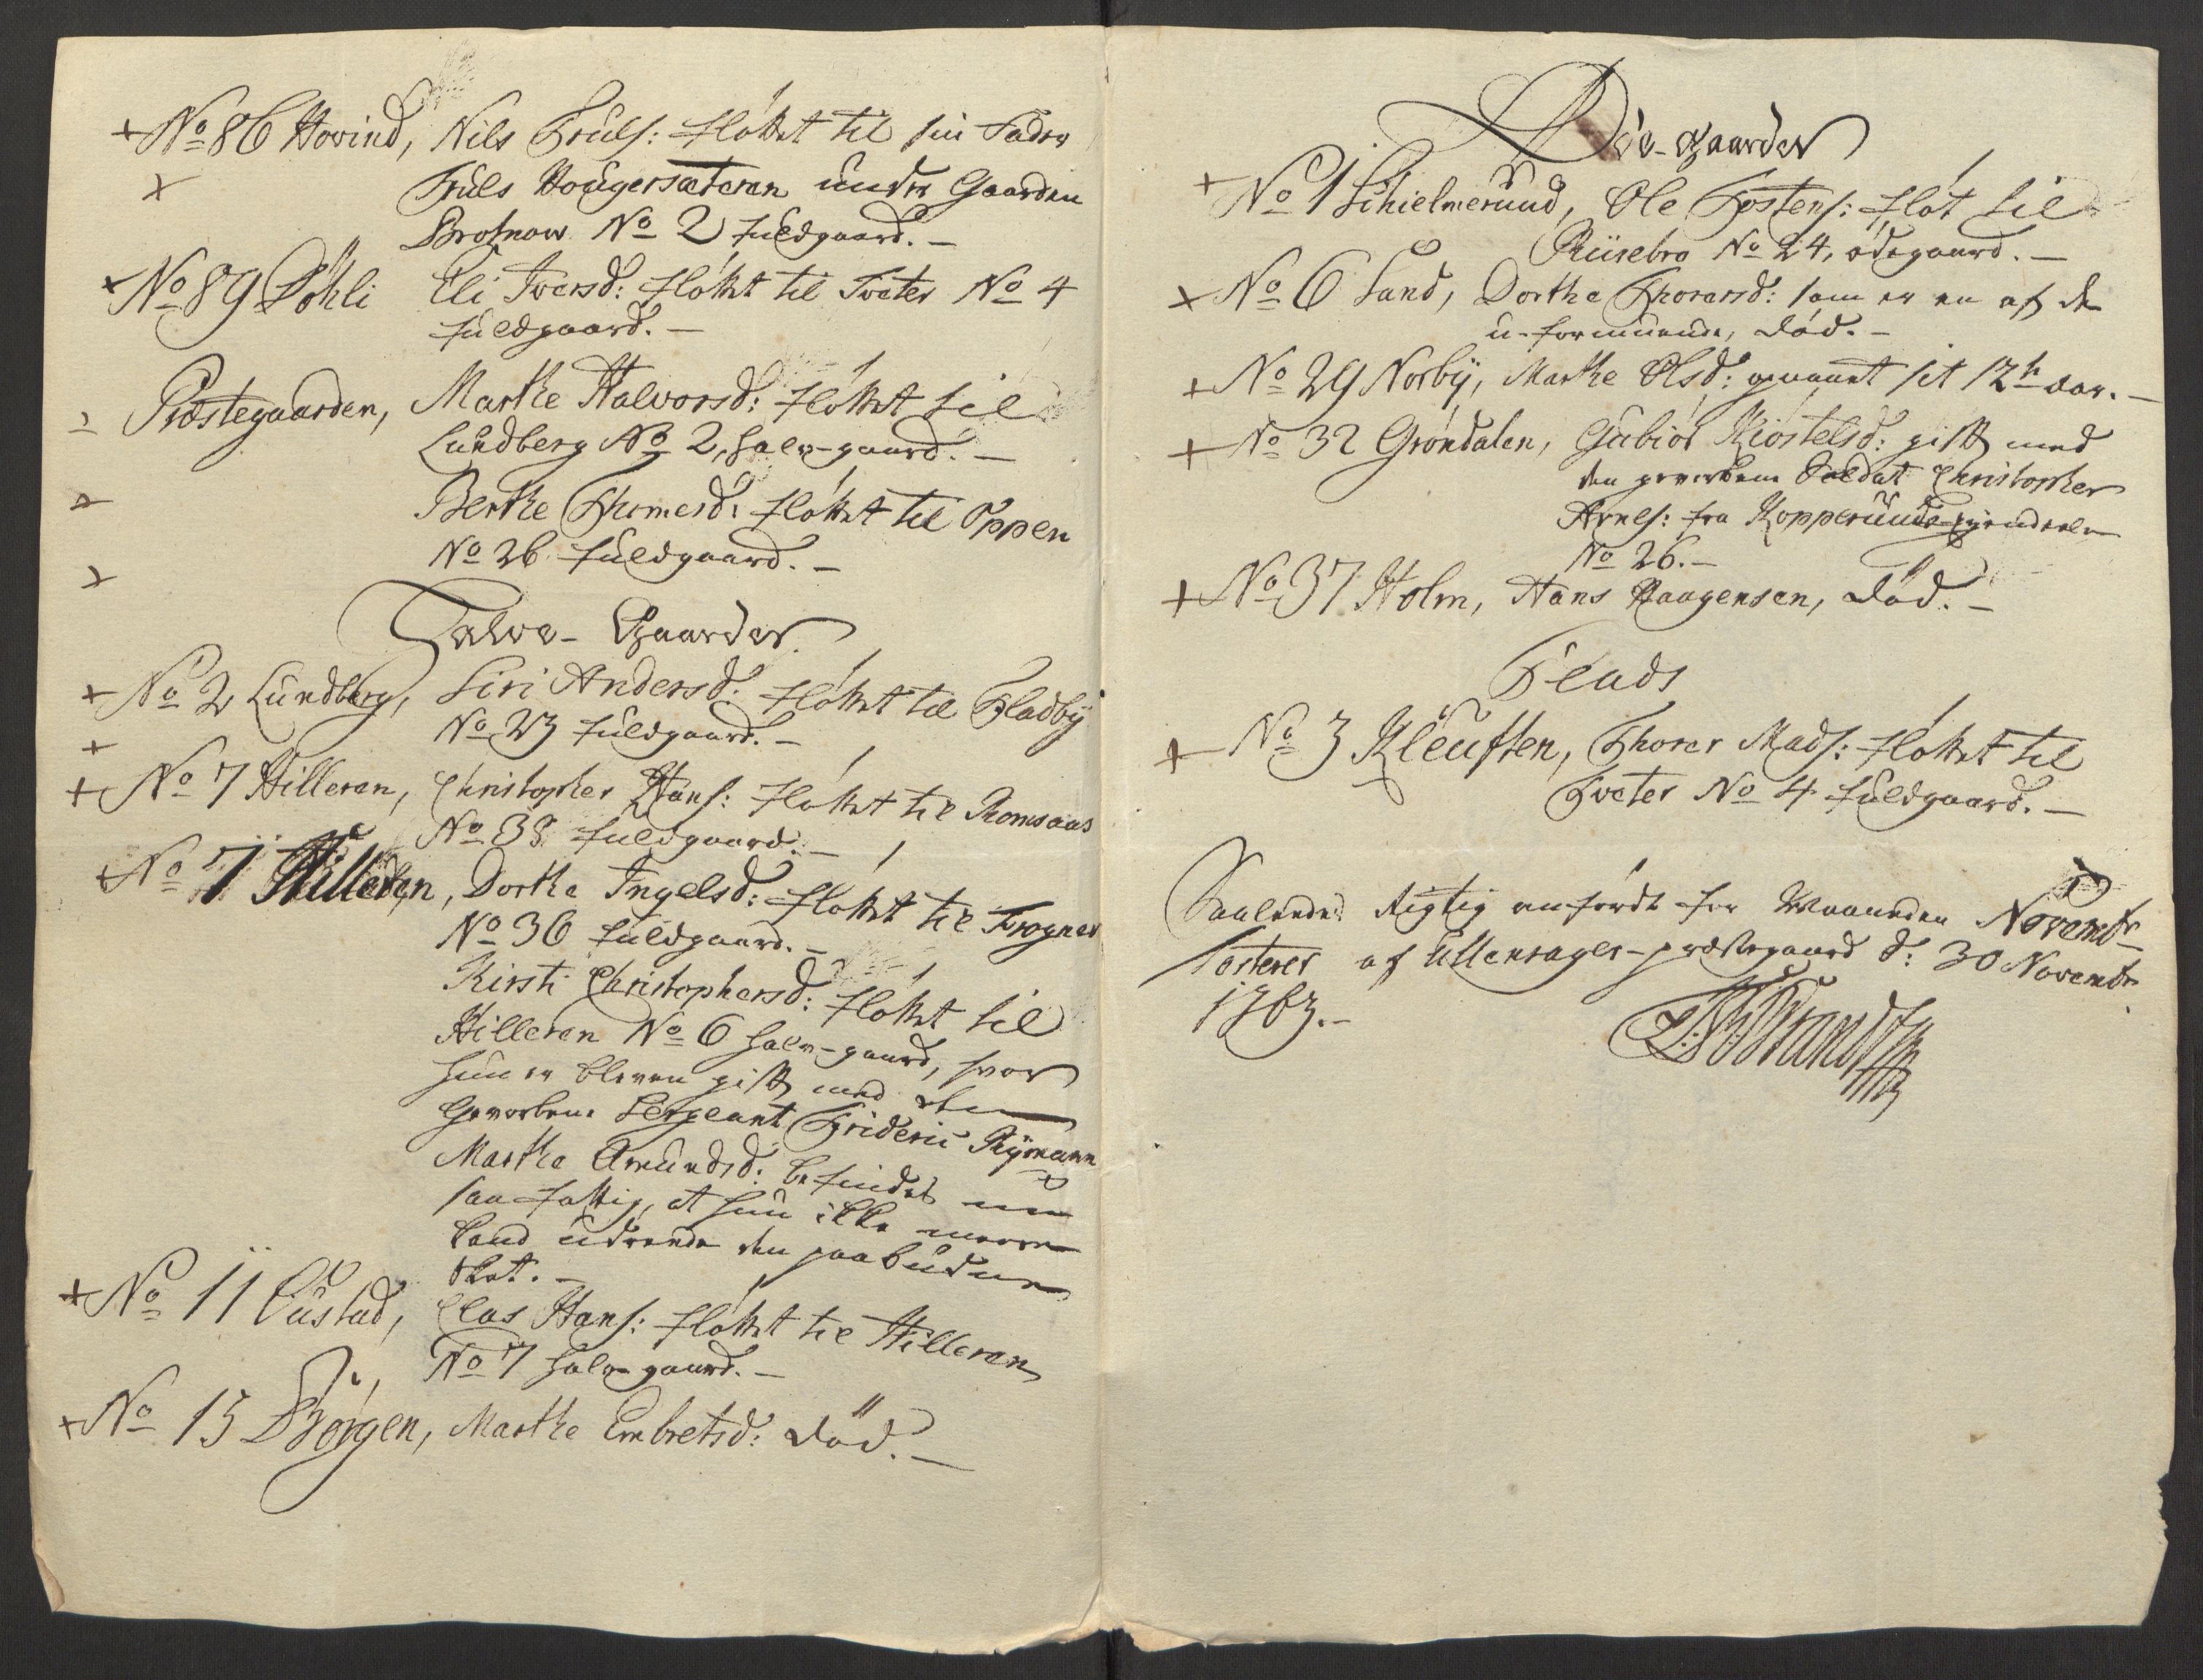 + No 86 Hovind, Nils Truls: fløttet til sin Fader
x Truls Hougersæteren under Gaarden
Brotnow No 2 fuldgaard. –
+ No 89 Løhli Eli Iversd: fløttet til Tveter No 4
fuldgaard. –
Præstegaarden, Marthe Halvorsd: fløttet til
Lundberg No 2, halv-gaard. –
Berthe Thomesd: fløttet til Oppen
x No 26 fuldgaard. –
Halve-Gaarder.
+ No 2 Lundberg, Siri Andersd: fløttet til Fladby
+ No 23 fuldgaard. –
+ No 7 Hilleren, Christopher Hans: fløttet til Romsaas
No 38 fuldgaard. –
+ No 7 Hilleren, Dorthe Ingelsd: fløttet til Frogner
No 36 fuldgaard. –
Kirsti Christophersd: fløttet til
Hilleren No 6 halv-gaard, hvor
hun er bleven gift med den
Gevorbene Sergeant Frideric Rymann
Marthe Amundsd: befindes nu
saa fattig, at hun ikke meere
kand udreede den paabudne
Skat. –
+ No 11 Oustad, Clas Hans: fløttet til Hilleren
No 7 halv-gaard. –
+ No 15 Børgen, Marthe Embretsd: død. –
Øde-Gaarder
+ No 1 Schielmerund, Ole Tostens: fløt til
Riisebro No 24, ødegaard. –
x No 6 Sand, Dorthe Thorersd: som er en af de
u-formuende, død. –
+ No 29 Norby, Marthe Olsd: gevannt sit 12te aar. –
+ No 32 Grøndalen, Gubiør Kiøstelsd: gift med
den gevorbene Soldat Christopher
Arnes: fra Kopperuuds-eyendeele
No 26. –
+ No 37 Holm, Hans Haagensen, død. –
Plads
+ No 3 Kleuften, Thorer Mads: fløttet til
Tveter No 4 fuldgaard. –
Saaledes rigtig anført for Maaneden Novembr
testerer af Ullensager-præstegaard d: 30 Novembr
1763. –